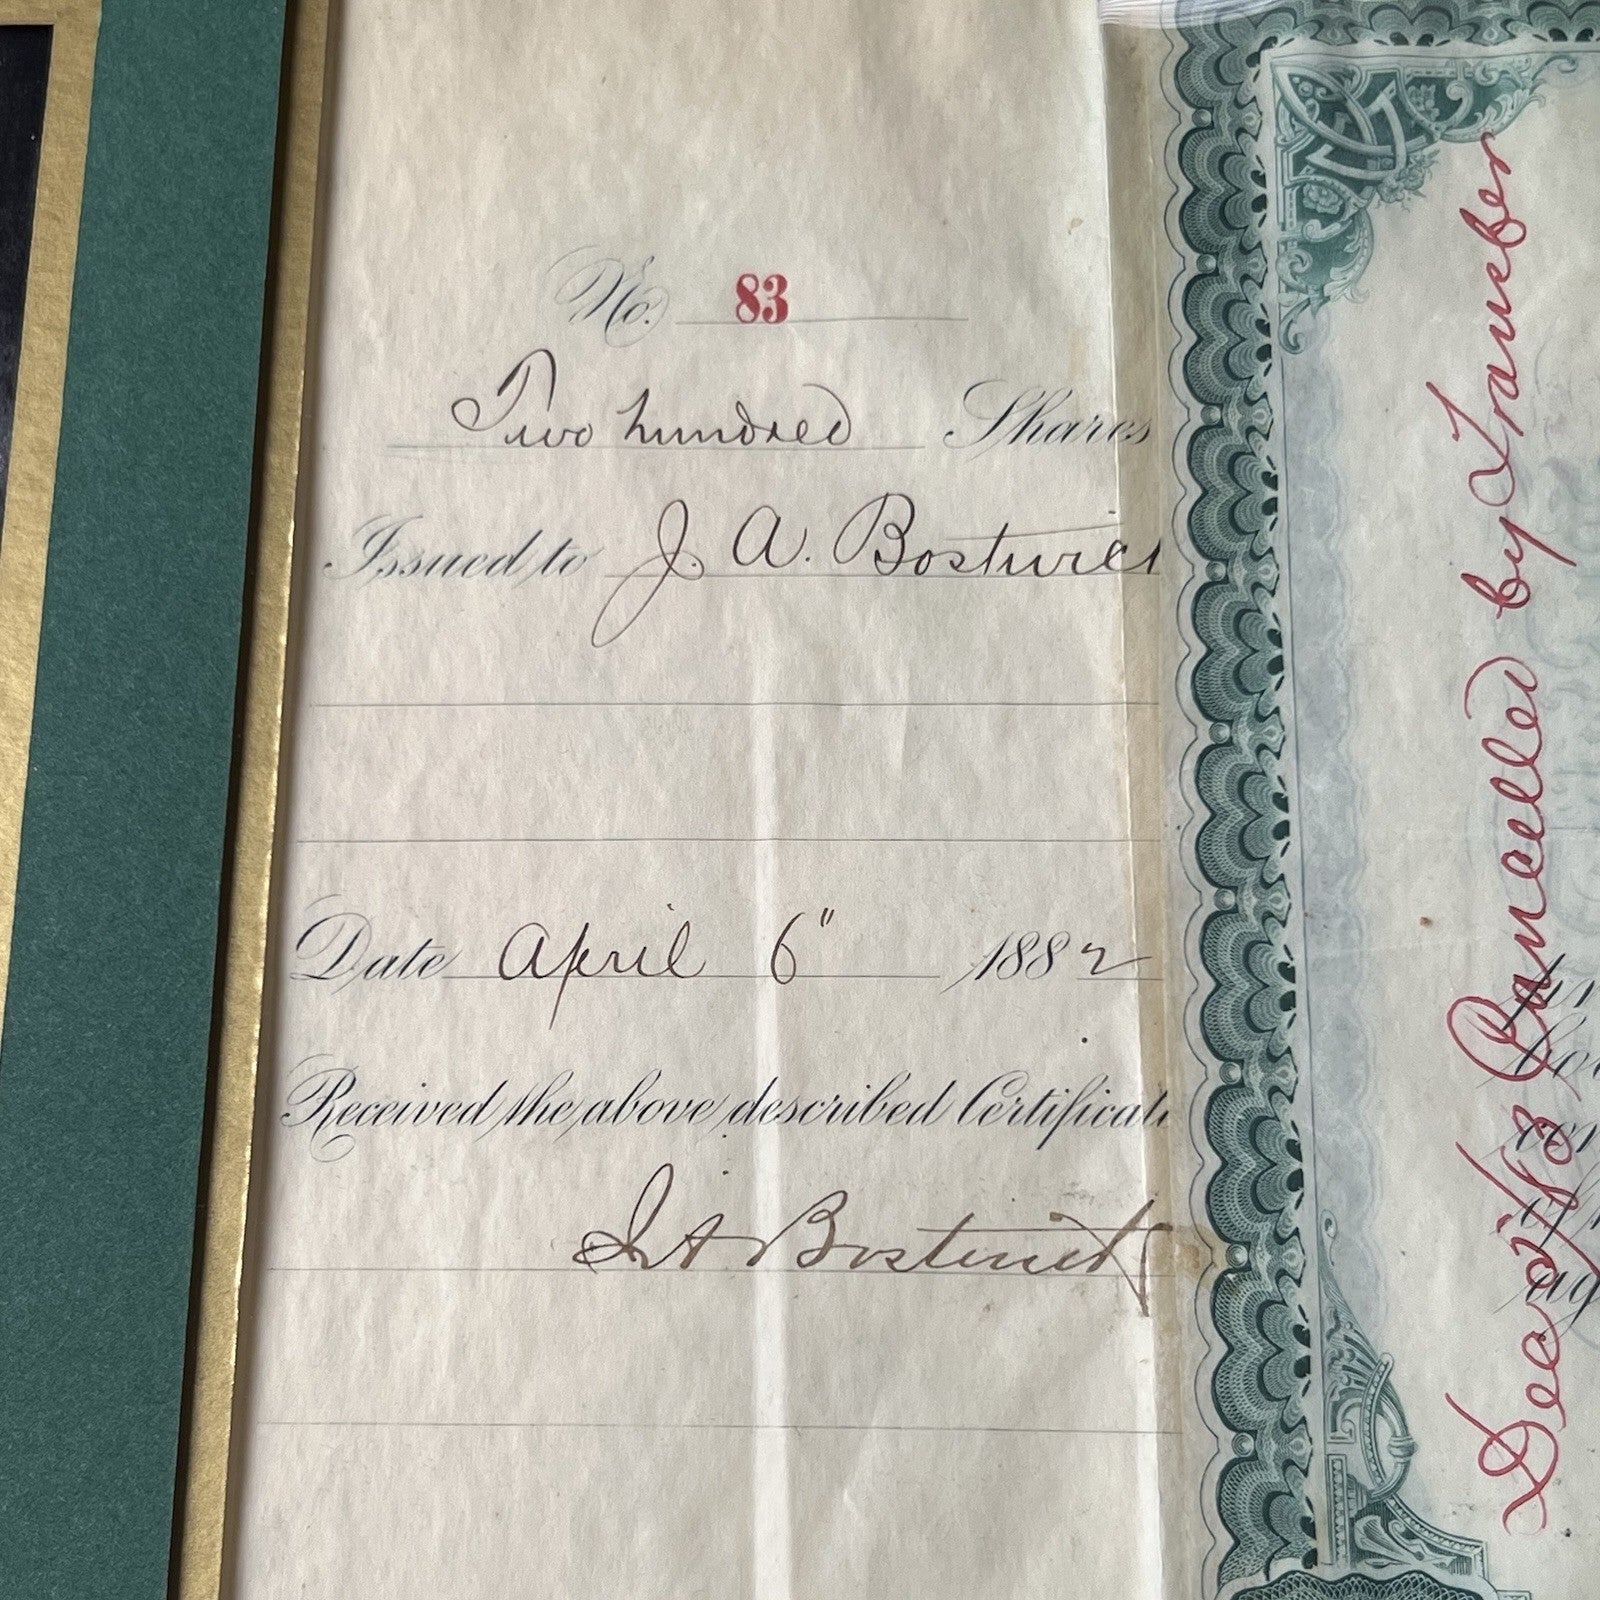 No. 83
Two hundred Shares
Issued to J. A. Bostwick
Date April 6" 1882
Received the above described Certificate
J A Bostwick
Cancelled by Transfer